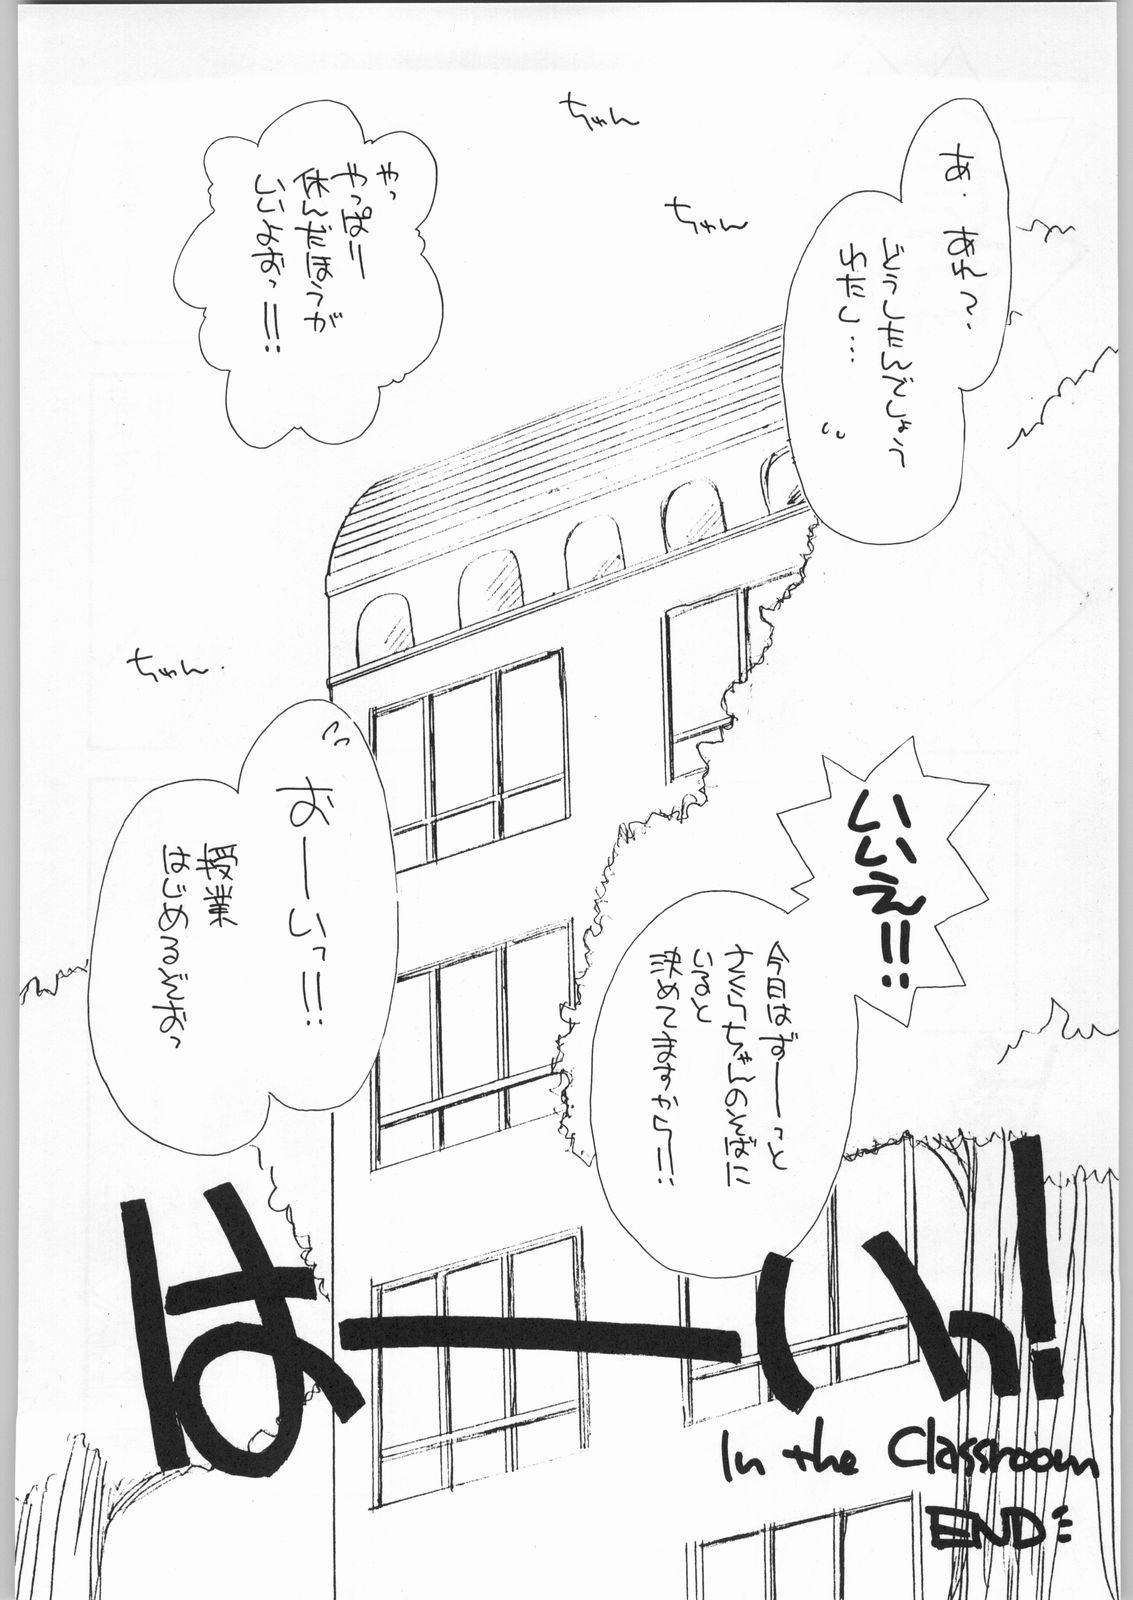 あ、あれ?
どうしたんでしょう
わたし…
ちゃん
ちゃん
やっ
やっぱり
休んだほうが
いいよおっ!!
ちゃん
いいえ!!
今日はずーーっと
さくらちゃんのそばに
いると
決めてますから!!
おーーいっ!!
授業
はじめるぞおっ
はーいっ!
In the Classroom
END